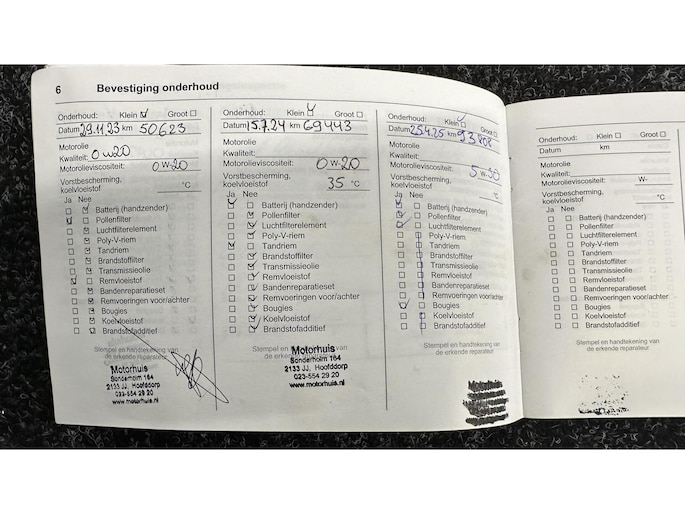 6 Bevestiging onderhoud
Onderhoud: Klein Groot
Datum 29.11.23 km 50623
Motorolie
Kwaliteit: 0W20
Motorolieviscositeit: 0W-20
Vorstbescherming,
koelvloeistof °C
Ja Nee
Batterij (handzender)
Pollenfilter
Luchtfilterelement
Poly-V-riem
Tandriem
Brandstoffilter
Transmissieolie
Remvloeistof
Bandenreparatieset
Remvoeringen voor/achter
Bougies
Koelvloeistof
Brandstofadditief
Stempel en handtekening van
de erkende reparateur
Motorhuis
Sonderholm 164
2133 JJ, Hoofddorp
023-554 29 20
www.motorhuis.nl
Onderhoud: Klein Groot
Datum 15.7.24 km 69443
Motorolie
Kwaliteit:
Motorolieviscositeit: 0W-20
Vorstbescherming,
koelvloeistof 35 °C
Ja Nee
Batterij (handzender)
Pollenfilter
Luchtfilterelement
Poly-V-riem
Tandriem
Brandstoffilter
Transmissieolie
Remvloeistof
Bandenreparatieset
Remvoeringen voor/achter
Bougies
Koelvloeistof
Brandstofadditief
Stempel en handtekening van
de erkende reparateur
Motorhuis
Sonderholm 164
2133 JJ, Hoofddorp
023-554 29 20
www.motorhuis.nl
Onderhoud: Klein Groot
Datum 25.4.25 km 93808
Motorolie
Kwaliteit:
Motorolieviscositeit: 5W-30
Vorstbescherming,
koelvloeistof °C
Ja Nee
Batterij (handzender)
Pollenfilter
Luchtfilterelement
Poly-V-riem
Tandriem
Brandstoffilter
Transmissieolie
Remvloeistof
Bandenreparatieset
Remvoeringen voor/achter
Bougies
Koelvloeistof
Brandstofadditief
Stempel en handtekening van
de erkende reparateur
Motorhuis
Onderhoud: Klein Groot
Datum km
Motorolie
Kwaliteit:
Motorolieviscositeit: W-
Vorstbescherming,
koelvloeistof °C
Ja Nee
Batterij (handzender)
Pollenfilter
Luchtfilterelement
Poly-V-riem
Tandriem
Brandstoffilter
Transmissieolie
Remvloeistof
Bandenreparatieset
Remvoeringen voor/achter
Bougies
Koelvloeistof
Brandstofadditief
Stempel en handtekening van
de erkende reparateur